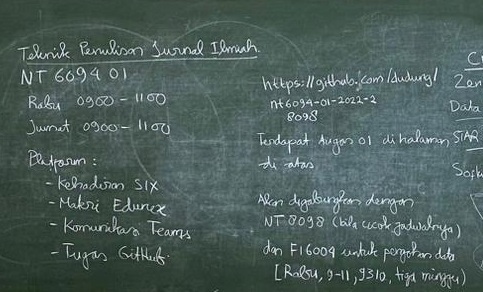 Teknik Penulisan Jurnal Ilmiah.
NT 6094 01
Rabu 0900 - 1100
Jumat 0900 - 1100
Platform :
- Kehadiran SIX
- Materi Edunex
- Komunikasi Teams
- Tugas GitHub.
https://github.com/dudung/
nt6094-01-2022-2
8098
Terdapat 01 di halaman
di atas
Akan digabungkan dengan
NT 8098 (bila cocok jadwalnya)
dan FI6004 untuk data
[Rabu, 9-11, 9310, tiga minggu)
Zen
Data
STAR